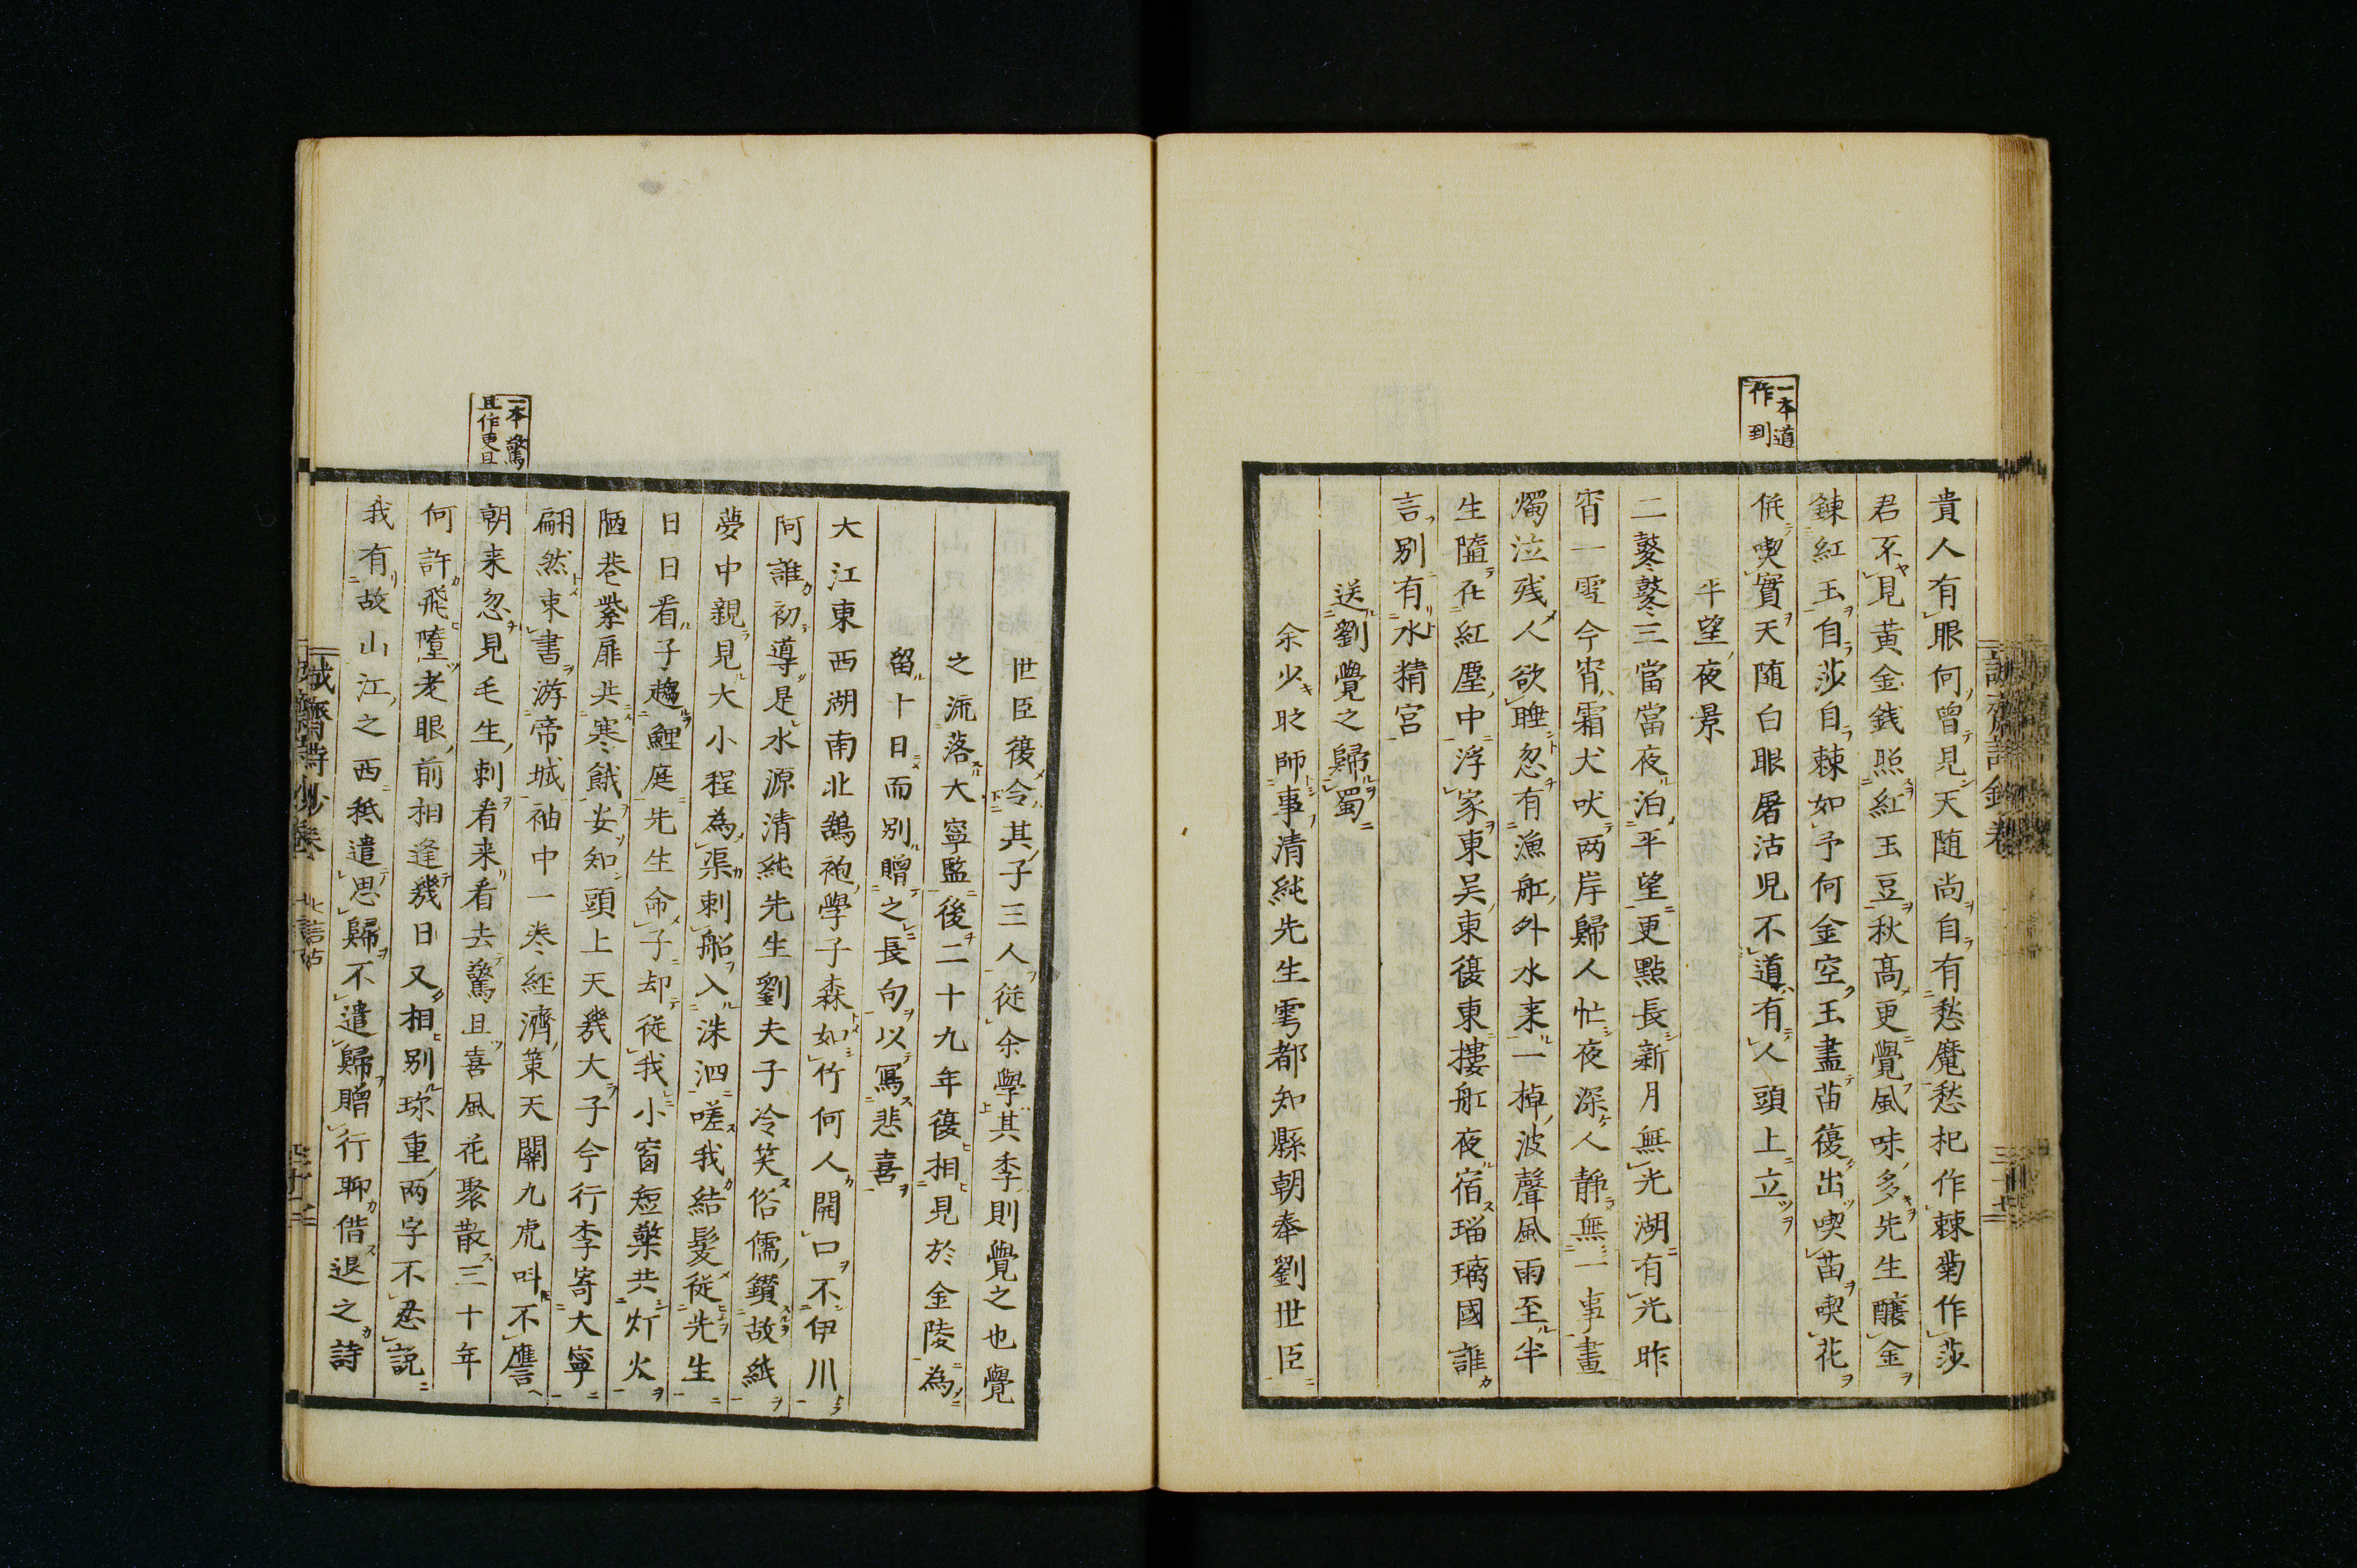 一本道
作到
貴人有眼何曾見天随尚自有愁魔愁杞作棘菊作莎
君不見黄金銭照紅玉豆秋髙更覺風味多先生釀金
鍊紅玉自莎自棘如予何金空玉盡苗復出喫苗喫花
仾喫實天随白眼屠沽児不道有人頭上立
平望夜景
二鼕鼕三當當夜泊平望更點長新月無光湖有光昨
宵一雪今宵霜犬吠两岸歸人忙夜深人静無一事畫
燭泣残人欲睡忽有漁舡外水来一棹波聲風雨至半
生隨在紅塵中浮家東吴東復東摟舡夜宿瑙璃國誰
言别有水精宮
送劉覺之歸蜀
余少時師事清純先生雩都知縣朝奉劉世臣
世臣復令其子三人従余學其季則覺之也覺
之流落大寧監後二十九年復相見於金陵為
留十日而别贈之長句以寫悲喜
大江東西湖南北鵠袍學子森如竹何人開口不伊川
阿誰初導是水源清純先生劉夫子冷笑俗儒鑚故紙
夢中親見大小程為渠刺船入洙泗嗟我結髪従先生
日日看子趨鯉庭先生命子却従我小窗短檠共灯火
陋巷紫扉共寒餓安知頭上天幾大子今行李寄大寧
翩然東書游帝城袖中一巻経濟策天關九虎呌不譍
一本驚
且作更且
朝来忽見毛生刺看来看去驚且喜風花聚散三十年
何許飛墮老眼前相逢幾日又相别珎重两字不忍説
我有故山江之西秪遣思歸不遣歸贈行聊借退之詩